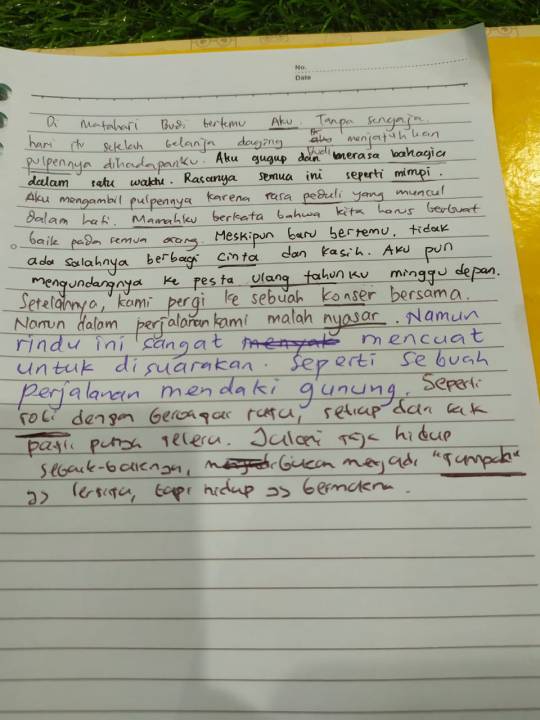 No.
Date
Di Matahari Budi bertemu Aku. Tanpa sengaja
hari itu setelah belanja daging Budi menjatuhkan
pulpennya dihadapanku. Aku gugup dan merasa bahagia
dalam satu waktu. Rasanya semua ini seperti mimpi.
Aku mengambil pulpennya karena rasa peduli yang muncul
dalam hati. Mamahku berkata bahwa kita harus berbuat
baik pada semua orang. Meskipun baru bertemu, tidak
ada salahnya berbagi cinta dan kasih. Aku pun
mengundangnya ke pesta ulang tahunku minggu depan.
Setelahnya, kami pergi ke sebuah konser bersama.
Namun dalam perjalanan kami malah nyasar. Namun
rindu ini sangat mencuat
untuk disuarakan. Seperti sebuah
perjalanan mendaki gunung. Seperti
roti dengan beragam rasa, setiap dari kak
pasti punya selera. Jalani saja hidup
sebaik-baiknya, bukan menjadi "sampah"
tersisa, tapi hidup bermakna.